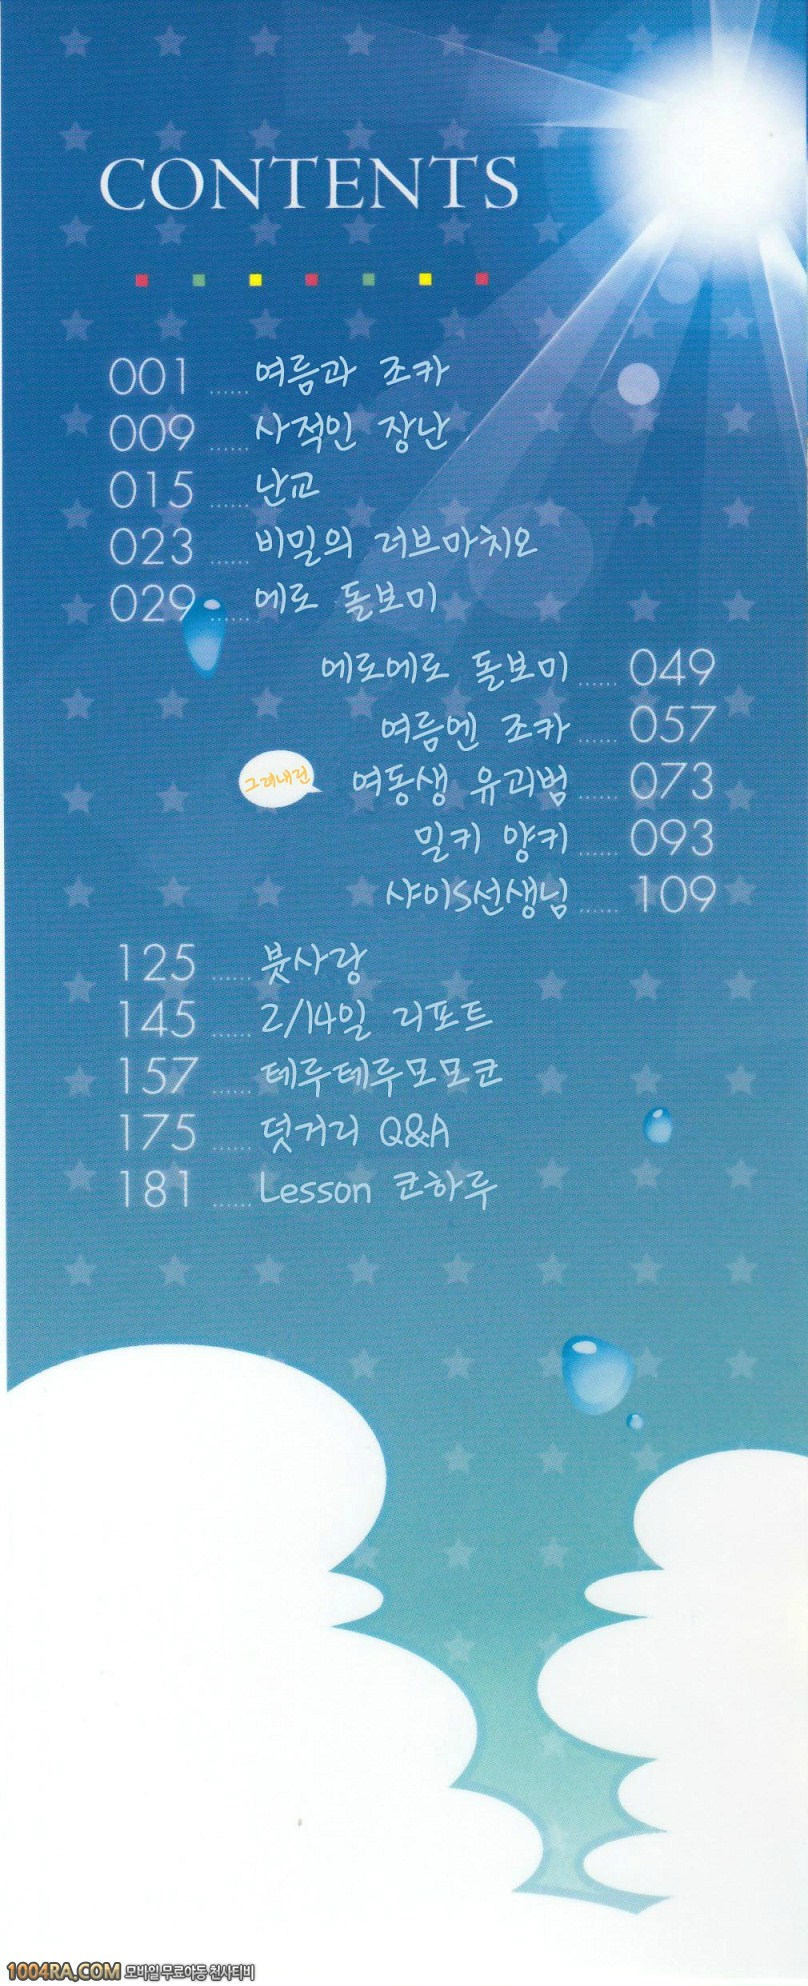 CONTENTS
001 ...... 여름과 조카
009 ...... 사적인 장난
015 ...... 난교
023 ...... 비밀의 러브마치오
029 ...... 에로 돌보미
에로에로 돌보미 ...... 049
여름엔 조카 ...... 057
그려내린 여동생 유괴범 ...... 073
밀키 양키 ...... 093
샤이S선생님 ...... 109
125 ...... 붓사랑
145 ...... 2/14일 리포트
157 ...... 테루테루모모코
175 ...... 덧거리 Q&A
181 ...... Lesson 코하루
1004RA.COM 모바일 무료야동 천사티비